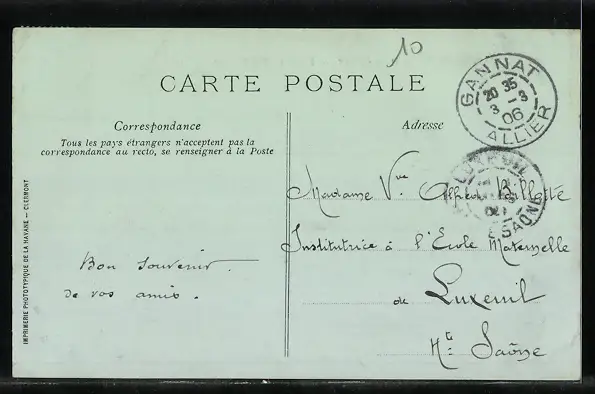 10
CARTE POSTALE
GANNAT
20 35
3 - 3
06
ALLIER
Correspondance
Adresse
Tous les pays étrangers n'acceptent pas la
correspondance au recto, se renseigner à la Poste
LUXEUIL
Hte SAONE
Madame Vve Alfred Billotte
Institutrice à l'École Maternelle
de Luxeuil
Hte Saône
Bon souvenir.
de vos amis.
IMPRIMERIE PHOTOTYPIQUE DE LA HAVANE — CLERMONT